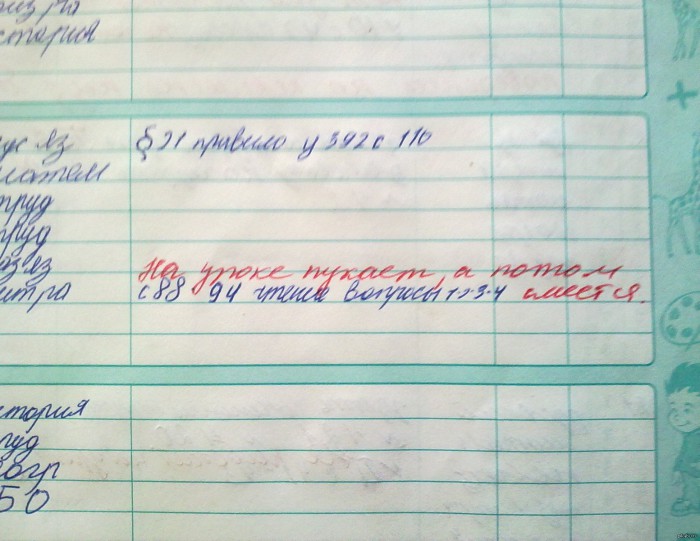 стория
§ 21 правило у 392 с 110
матем
труд
труд
яз
На уроке пукает, а потом
с 88 94 чтение вопросы 1-2-3-4 смеется.
стория
БО